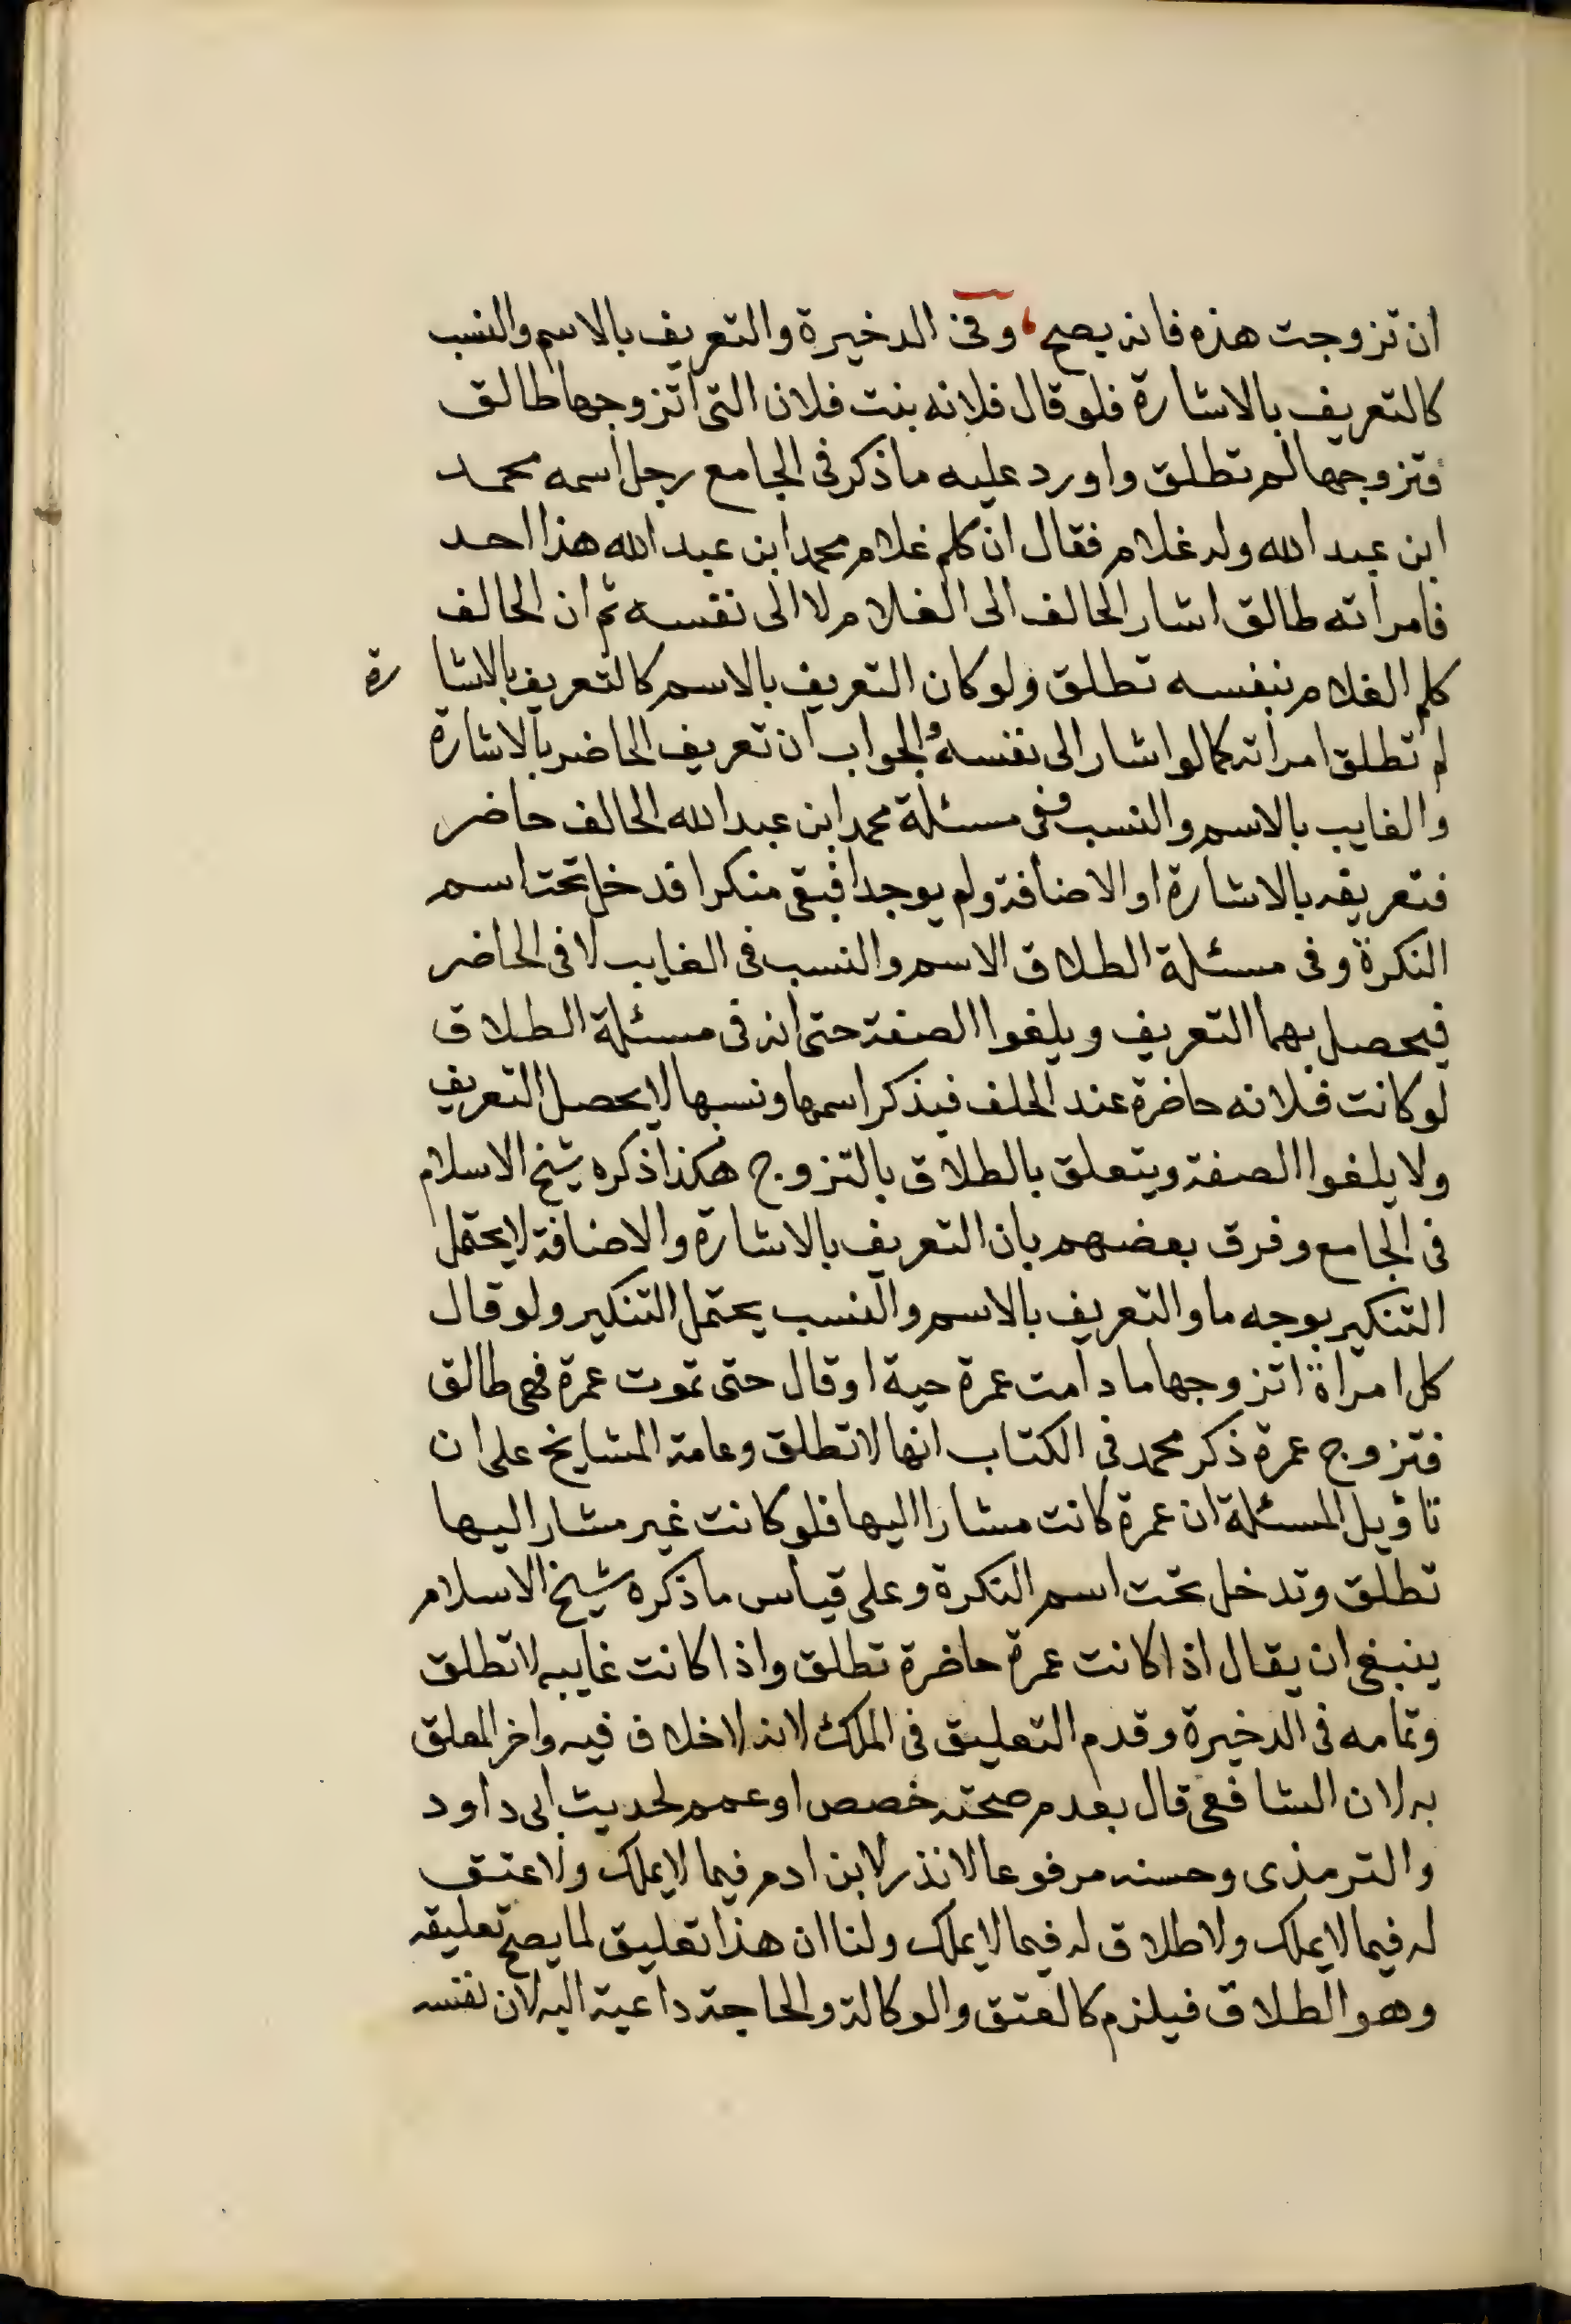 ان تزوجت هذه فانه يصح وفى الدخيرة والتعريف بالاسم والنسب
كالتعريف بالاشارة فلو قال فلانه بنت فلان التى اتزوجها طالق
فتزوجها لم تطلق واورد عليه ما ذكر فى الجامع رجل اسمه محمد
ابن عبد الله وله غلام فقال ان كلم غلام محمد ابن عبد الله هذا احد
فامراته طالق اشار الحالف الى الغلام لا الى نفسه ثم ان الحالف
كلم الغلام بنفسه تطلق ولو كان التعريف بالاسم كالتعريف بالاشارة
لم تطلق امراته كما لو اشار الى نفسه والجواب ان تعريف الحاضر بالاشارة
والغايب بالاسم والنسب ففى مسئلة محمد ابن عبد الله الحالف حاضر
فتعريفه بالاشارة او الاضافة ولم يوجدا فبقى منكرا قدخل تحت اسم
النكرة وفى مسئلة الطلاق الاسم والنسب فى الغايب لا فى الحاضر
فيحصل بهما التعريف ويلغوا الصفة حتى انه فى مسئلة الطلاق
لو كانت فلانه حاضرة عند الحلف فيذكر اسمها ونسبها لا يحصل التعريف
ولا يلغوا الصفة ويتعلق بالطلاق بالتزوج هكذا ذكره شيخ الاسلام
فى الجامع وفرق بعضهم بان التعريف بالاشارة والاضافة لا يحتمل
التنكير بوجه ما والتعريف بالاسم والنسب يحتمل التنكير ولو قال
كل امراة اتزوجها ما دامت عمرة حية او قال حتى تموت عمرة فهى طالق
فتزوج عمرة ذكر محمد فى الكتاب انها لا تطلق وعامة المشايخ على ان
تاويل المسئلة ان عمرة كانت مشارا اليها فلو كانت غير مشار اليها
تطلق وتدخل تحت اسم النكرة وعلى قياس ما ذكره شيخ الاسلام
ينبغى ان يقال اذا كانت عمرة حاضرة تطلق واذا كانت غايبه لا تطلق
وتمامه فى الدخيرة وقدم التعليق فى الملك لانه لا خلاف فيه واخر المعلق
به لان الشافعى قال بعدم صحته خصص او عمم لحديث ابى داود
والترمذى وحسنه مرفوعا لا نذر لابن ادم فيما لا يملك ولا عتق
له فيما لا يملك ولا طلاق له فيما لا يملك ولنا ان هذا تعليق لما يصح تعليقه
وهو الطلاق فيلزم كالعتق والوكالة والحاجة داعية اليه لان نفسه